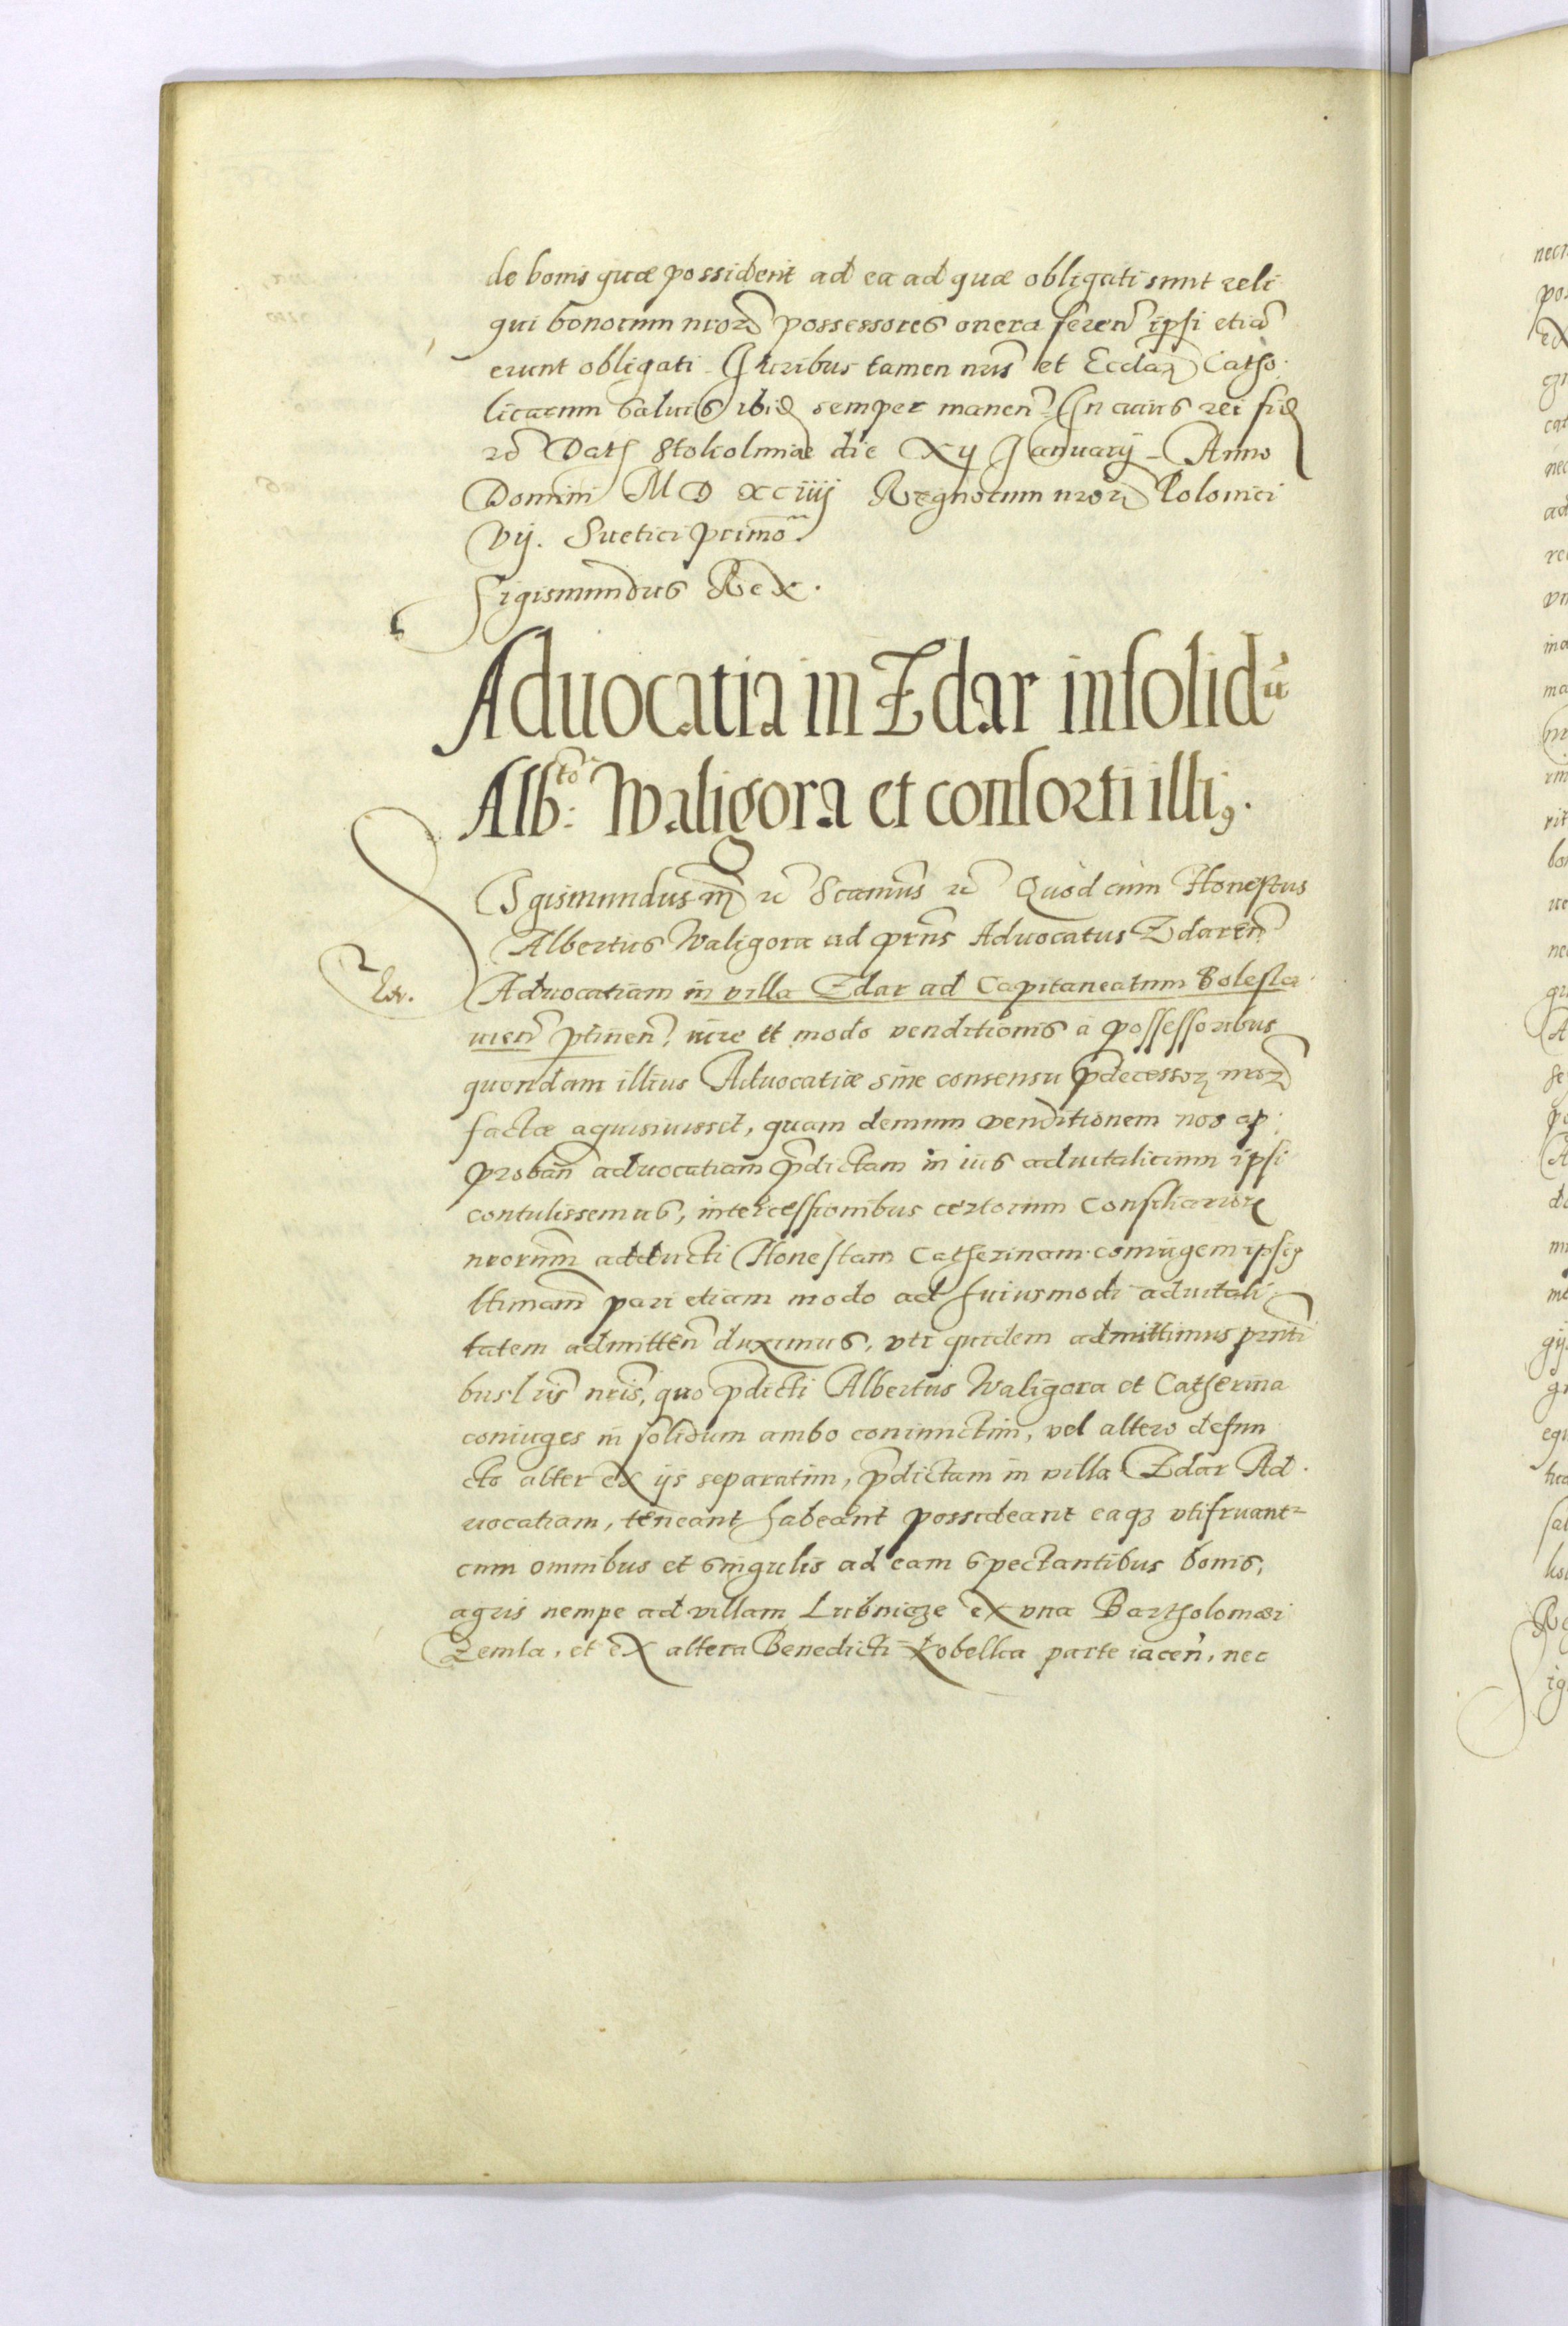 de bonis quæ possident ad ea ad quæ obligati sunt reli
qui bonorum nror̃ possessores onera feren̄ ipsi etiā
erunt obligati. Iuribus tamen nr̄is et Eccl̄ar̃ Catho-
licarum saluis ibid̄ semper manen̄. In cuius rei fid̄
rc̄ Dat̄ Stokolmiæ die Xij January Anno
Domini M D XCiiij Regnorum nror̃ Polonici
Vij. Suetici primo.
Sigismundus Rex.
Aduocatia in Zdar insolidū
Alb:to Waligora et consorti illi9.
Sgismundus m̄ rc̄ Scamus rc̄ Quod cum Honestus
Albertus Waligora ad prn̄s Aduocatus Zdaren̄
Aduocatiam in villa Zdar ad Capitaneatum Bolesla-
uien̄ ptinen̄, iure et modo venditionis à possessoribus
quondam illius Aduocatiæ sine consensu p̄decessor̃ nror̃
factæ aquisiuisset, quam demum venditionem nos ap-
proban̄ aduocatiam p̄dictam in ius aduitalicium ipsi
contulissemus, intercessionibus certorum Consiliarior̃
nrorum̄ adducti Honestam Catherinam coniugem ipsi9
ltimam̄ pari etiam modo ad huiusmodi aduitali-
tatem admitten̄ duximus, vti quidem admittimus prn̄ti
bus lr̄is nr̄is, quo p̄dicti Albertus Waligora et Catherina
coniuges in solidum ambo coniunctim, vel altero defun
cto alter ex ijs separatim, p̄dictam in villa Zdar Ad-
uocatiam, teneant habeant possideant eaqz vtifruant~
cum omnibus et singulis ad eam spectantibus bonis,
agris nempe ad villam Lubnicze ex vna Bartholomæi
Zemla, et ex altera Benedicti Kobelka parte iacen̄, nec